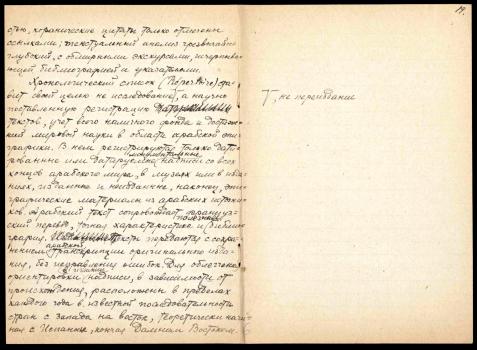 19.
стью, коранические цитаты только отмечены
ссылками; текстуальный анализ чрезвычайно
глубокий, с обширными экскурсами, исчерпываю-
щей библиографией и указателями.
Хронологический список (Répertoire) ста-
вит своей целью не исследование, а научно
поставленную регистрацию
текстов, учет всего наличного фонда и достиже-
ний мировой науки в области арабской эпи-
графики. В нем регистрируются только дати-
рованные или датируемые монументальные надписи со всех
концов арабского мира, в музеях или в изда-
ниях, изданные и неизданные, наконец, эпи-
графические материалы из арабских источни-
ков. Арабский текст сопровождает француз-
ский перевод, точная характеристика и полезная библио-
графия. Тексты передаются с сохра-
нением арабской транскрипции оригинального изда-
ния, без исправления ошибок. Для облегчения
ориентировки в издании надписи, в зависимости от
происхождения, расположены в пределах
каждого года в известной последовательности
стран с запада на восток, теоретически начи-
ная с Испании, кончая Дальним Востоком.
Т, не переиздание